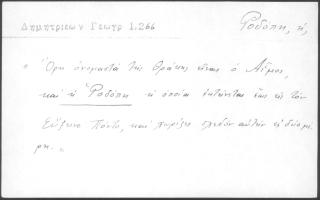 Δημητριεων Γεωγρ 1.266
Ροδόπη, ἡ,
Ὄρη ὀνομαστὰ τῆς Θράκης εἶναι ὁ Αἷμος,
καὶ ἡ Ῥοδόπη ἡ ὁποία ἐκτείνεται ἕως εἰς τὸν
Εὔξεινο Πόντο, καὶ χωρίζει σχεδὸν αὐτὴν εἰς δύο μέ
ρη.